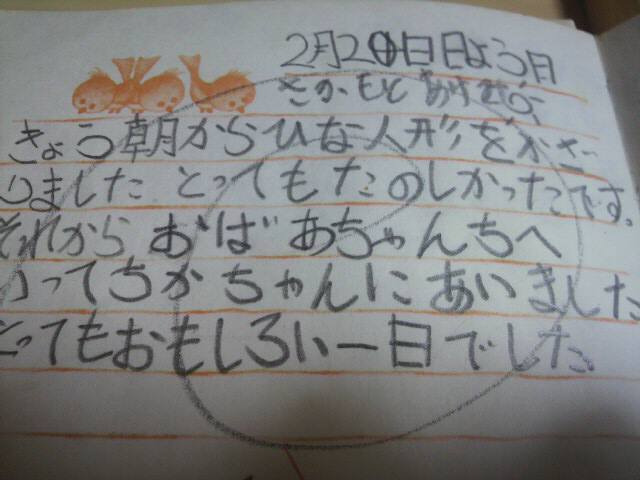 2月20日日よう日
さかもと
きょう朝からひな人形をかざ
りました とってもたのしかったです。
それから おばあちゃんちへ
いってちかちゃんにあいました
とってもおもしろい一日でした